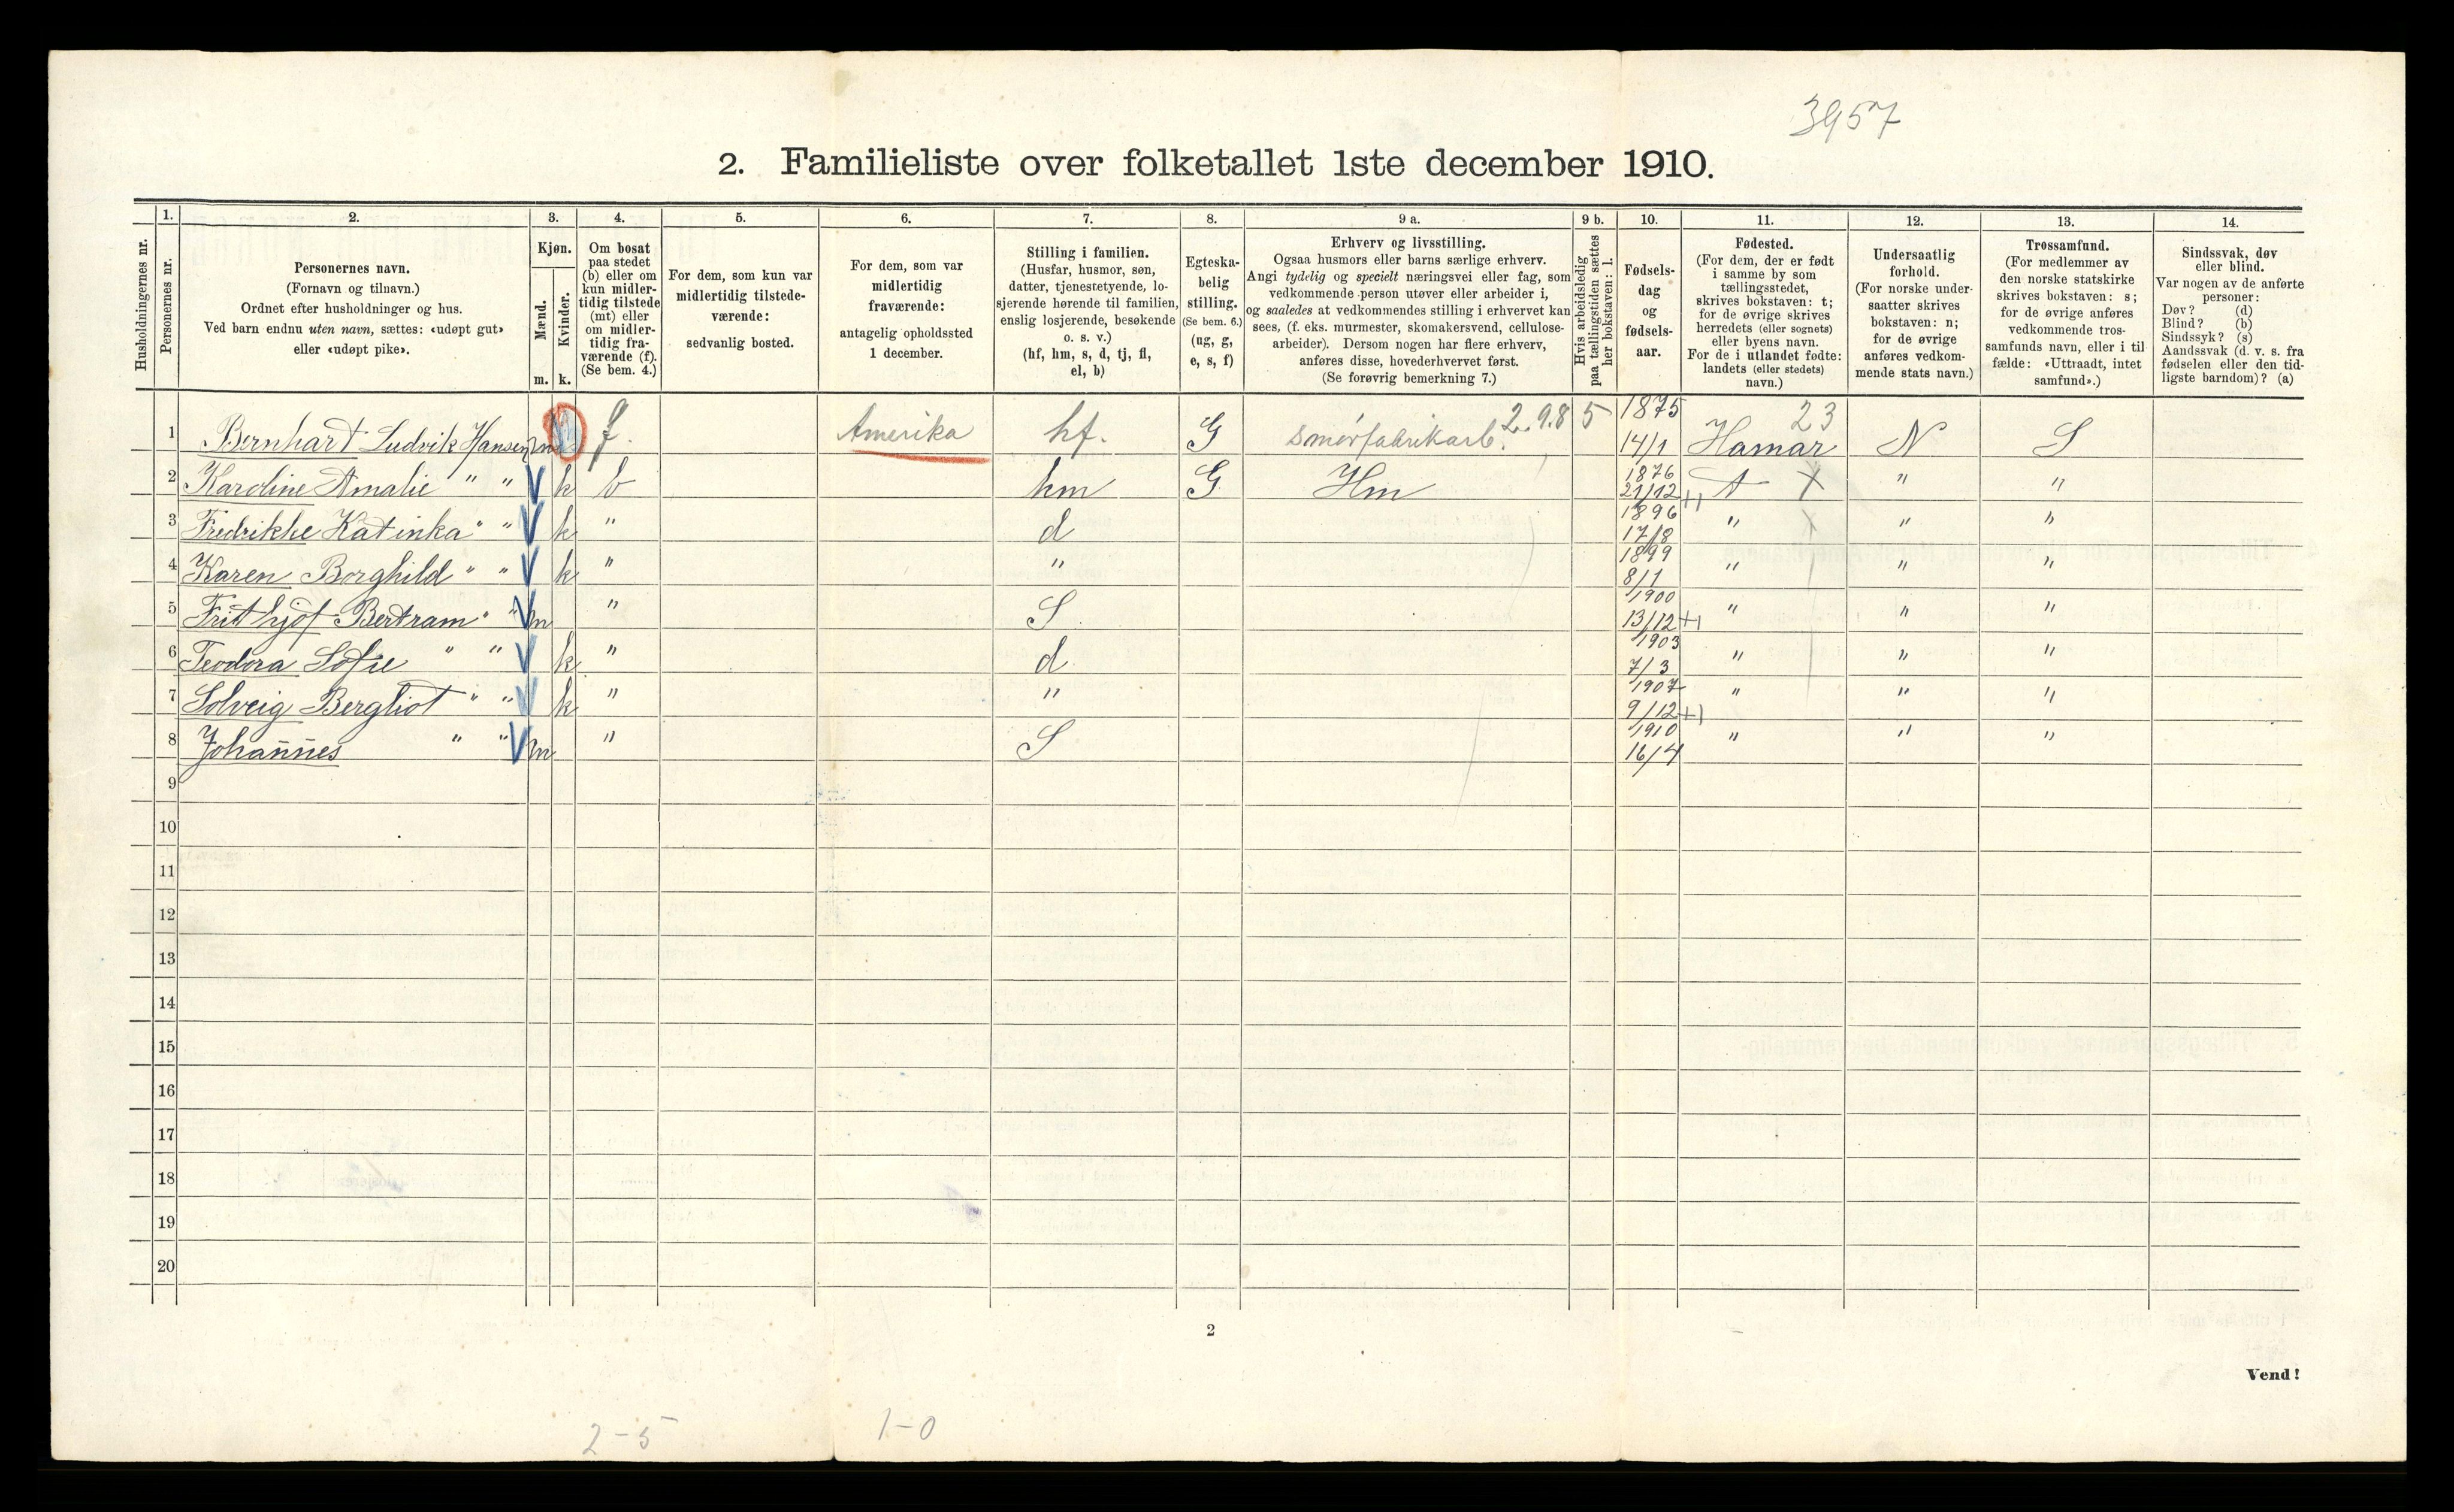 3957
2. Familieliste over folketallet 1ste december 1910.
Husholdningernes nr.
1. Personernes nr.
2. Personernes navn. (Fornavn og tilnavn.) Ordnet efter husholdninger og hus. Ved barn endnu uten navn, sættes: «udøpt gut» eller «udøpt pike».
3. Kjøn. Mænd. m. Kvinder. k.
4. Om bosat paa stedet (b) eller om kun midler-tidig tilstede (mt) eller om midler-tidig fra-værende (f). (Se bem. 4.)
5. For dem, som kun var midlertidig tilstede-værende: sedvanlig bosted.
6. For dem, som var midlertidig fraværende: antagelig opholdssted 1 december.
7. Stilling i familien. (Husfar, husmor, søn, datter, tjenestetyende, lo-sjerende hørende til familien, enslig losjerende, besøkende o. s. v.) (hf, hm, s, d, tj, fl, el, b)
8. Egteska-belig stilling. (Se bem. 6.) (ug, g, e, s, f)
9 a. Erhverv og livsstilling. Ogsaa husmors eller barns særlige erhverv. Angi tydelig og specielt næringsvei eller fag, som vedkommende person utøver eller arbeider i, og saaledes at vedkommendes stilling i erhvervet kan sees, (f. eks. murmester, skomakersvend, cellulose-arbeider). Dersom nogen har flere erhverv, anføres disse, hovederhvervet først. (Se forøvrig bemerkning 7.)
9 b. Hvis arbeidsledig paa tællingstiden sættes her bokstaven: l.
10. Fødsels-dag og fødsels-aar.
11. Fødested. (For dem, der er født i samme by som tællingsstedet, skrives bokstaven: t; for de øvrige skrives herredets (eller sognets) eller byens navn. For de i utlandet fødte: landets (eller stedets) navn.)
12. Undersaatlig forhold. (For norske under-saatter skrives bokstaven: n; for de øvrige anføres vedkom-mende stats navn.)
13. Trossamfund. (For medlemmer av den norske statskirke skrives bokstaven: s; for de øvrige anføres vedkommende tros-samfunds navn, eller i til fælde: «Uttraadt, intet samfund».)
14. Sindssvak, døv eller blind. Var nogen av de anførte personer: Døv? (d) Blind? (b) Sindssyk? (s) Aandssvak (d. v. s. fra fødselen eller den tid-ligste barndom)? (a)
1 Bernhart Ludvik Hansen m f. Amerika hf. G smørfabrikarb. 2.98 5 1875 14/1 Hamar 23 N S
2 Karoline Amalie " " V k b hm G Hm 1876 21/12 +1 t X " "
3 Fredrikke Katinka " " V k " d 1896 17/8 " " "
4 Karen Borghild " " V k " " 1899 8/1 " " "
5 Frithjof Bertram " " V m " S 1900 13/12 +1 " " "
6 Teodora Sofie " " V k " d 1903 7/3 " " "
7 Solveig Bergliot " " V k " " 1907 9/12 +1 " " "
8 Johannes " " V m " S 1910 16/4 " " "
9
10
11
12
13
14
15
16
17
18
19
20
2
Vend!
2-5
1-0